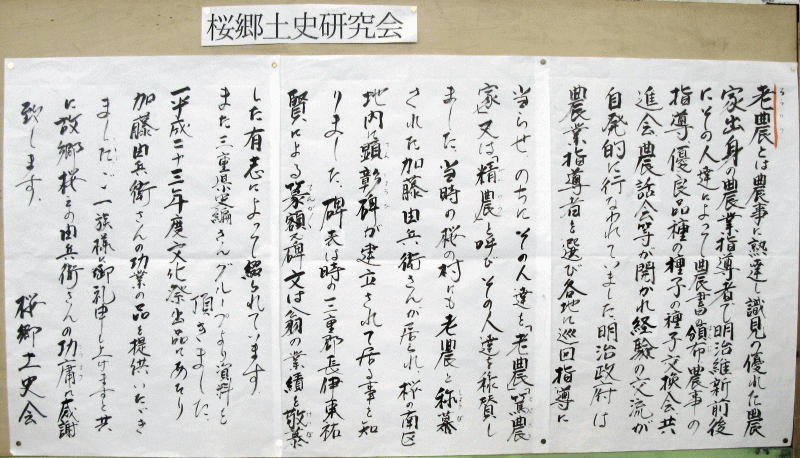 桜郷土史研究会
老農とは農事に熟達し識見の優れた農
家出身の農業指導者で明治維新前後
にその人達によって農書の頒布農事の
指導、優良品種の種子の種子交換会共
進会農談会等が開かれ経験の交流が
自発的に行なわれていました明治政府は
農業指導者を選び各地に巡回指導に
当らせ のちにその人達を「老農」「篤農
家」又は「精農」と呼び その人達を称賛し
ました。当時の桜の村にも老農と称慕
された加藤由兵衛さんが居られ、桜の南区
地内に顕彰碑が建立されて居る事を知
りました、碑表は時の三重郡長伊東祐
賢による篆額又碑文は翁の業績を敬慕
した有志によって綴られています。
また三重県史編さんグループより資料を
頂きました、
平成二十三年度文化祭出品にあたり
加藤由兵衛さんの功業の品を提供いただき
ました、ご一族様に御礼申し上げますと共
に故郷桜との由兵衛さんの功庸に感謝
致します。
桜郷土史会